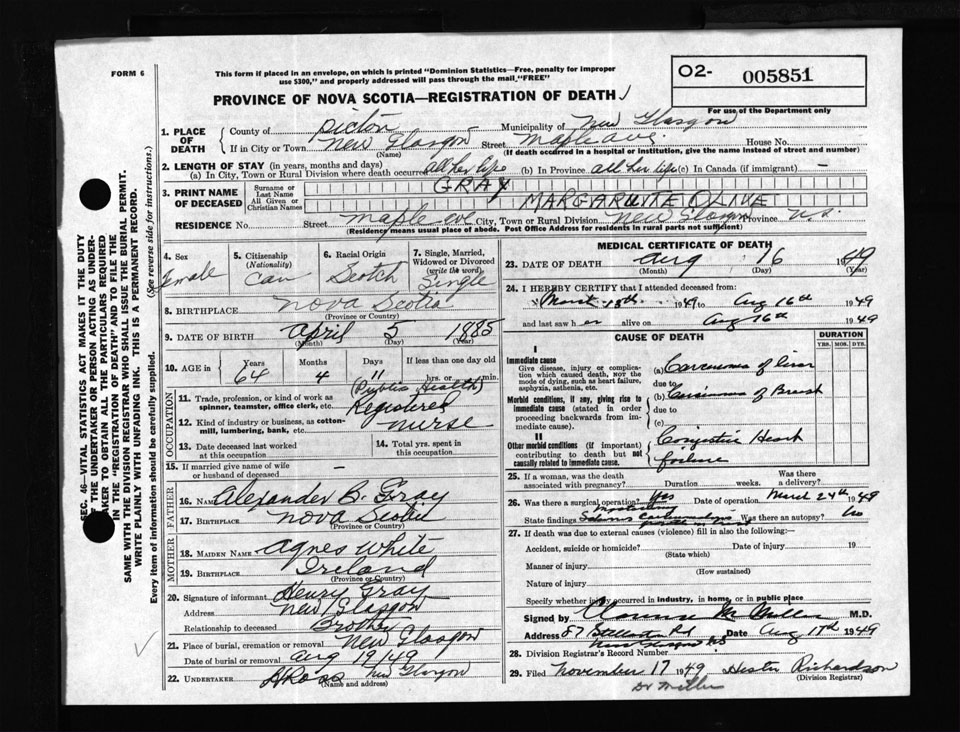 FORM 6
This form if placed in an envelope, on which is printed "Dominion Statistics—Free, penalty for improper
use $300," and properly addressed will pass through the mail, "FREE"
O2- 005851
PROVINCE OF NOVA SCOTIA—REGISTRATION OF DEATH
For use of the Department only
1. PLACE OF DEATH
County of Pictou Municipality of New Glasgow
If in City or Town New Glasgow Street Maple ave. House No.
(Name) (If death occurred in a hospital or institution, give the name instead of street and number)
2. LENGTH OF STAY (in years, months and days)
(a) In City, Town or Rural Division where death occurred all her life (b) In Province all her life (c) In Canada (if immigrant) —
3. PRINT NAME OF DECEASED
Surname or Last Name GRAY
All Given or Christian Names MARGARUITE OLIVE
RESIDENCE No. Street Maple ave City, Town or Rural Division New Glasgow Province N.S.
(Residence means usual place of abode. Post Office Address for residents in rural parts not sufficient)
4. Sex Female
5. Citizenship (Nationality) Can
6. Racial Origin Scotch
7. Single, Married, Widowed or Divorced (write the word) Single
8. BIRTHPLACE Nova Scotia
(Province or Country)
9. DATE OF BIRTH April 5 1885
(Month) (Day) (Year)
10. AGE in Years Months Days If less than one day old
64 4 11 hrs. or min.
(Public Health)
OCCUPATION
11. Trade, profession, or kind of work as spinner, teamster, office clerk, etc. Registered
12. Kind of industry or business, as cotton-mill, lumbering, bank, etc. nurse
13. Date deceased last worked at this occupation
14. Total yrs. spent in this occupation
15. If married give name of wife or husband of deceased —
FATHER
16. Name Alexander B. Gray
17. Birthplace Nova Scotia
(Province or Country)
MOTHER
18. Maiden Name Agnes White
19. Birthplace Ireland
(Province or Country)
20. Signature of informant Henry Gray
Address New Glasgow
Relationship to deceased Brother
21. Place of burial, cremation or removal New Glasgow
Date of burial or removal Aug 19/49
22. UNDERTAKER H Ross New Glasgow
(Name and address)
MEDICAL CERTIFICATE OF DEATH
23. DATE OF DEATH Aug 16 1949
(Month) (Day) (Year)
24. I HEREBY CERTIFY that I attended deceased from:
1949 to Aug 16th 1949
and last saw h er alive on Aug 16th 1949
CAUSE OF DEATH
DURATION
YRS. MOS. DYS.
I
Immediate cause
Give disease, injury or complication which caused death, not the mode of dying, such as heart failure, asphyxia, asthenia, etc.
(a) Carcinoma of liver
due to
Morbid conditions, if any, giving rise to immediate cause (stated in order proceeding backwards from immediate cause).
(b) Carcinoma of Breast
due to
(c)
II
Other morbid conditions (if important) contributing to death but not causally related to immediate cause.
Congestive Heart
failure
25. If a woman, was the death associated with pregnancy? Duration weeks. Was there a delivery?
26. Was there a surgical operation? Yes Date of operation March 24th 1949
State findings Was there an autopsy? No
27. If death was due to external causes (violence) fill in also the following:—
Accident, suicide or homicide? Date of injury 19
(State which)
Manner of injury
(How sustained)
Nature of injury
Specify whether injury occurred in industry, in home, or in public place
Signed by Clarence M Miller M.D.
Address 87 Date Aug 17th 1949
28. Division Registrar's Record Number
29. Filed November 17 1949 Hester Richardson
(Division Registrar)
Dr Miller
SEC. 46—VITAL STATISTICS ACT MAKES IT THE DUTY
OF THE UNDERTAKER OR PERSON ACTING AS UNDER-
TAKER TO OBTAIN ALL THE PARTICULARS REQUIRED
IN THE "REGISTRATION OF DEATH" AND TO FILE THE
SAME WITH THE DIVISION REGISTRAR WHO SHALL ISSUE THE BURIAL PERMIT.
WRITE PLAINLY WITH UNFADING INK. THIS IS A PERMANENT RECORD.
Every item of information should be carefully supplied. (See reverse side for instructions.)